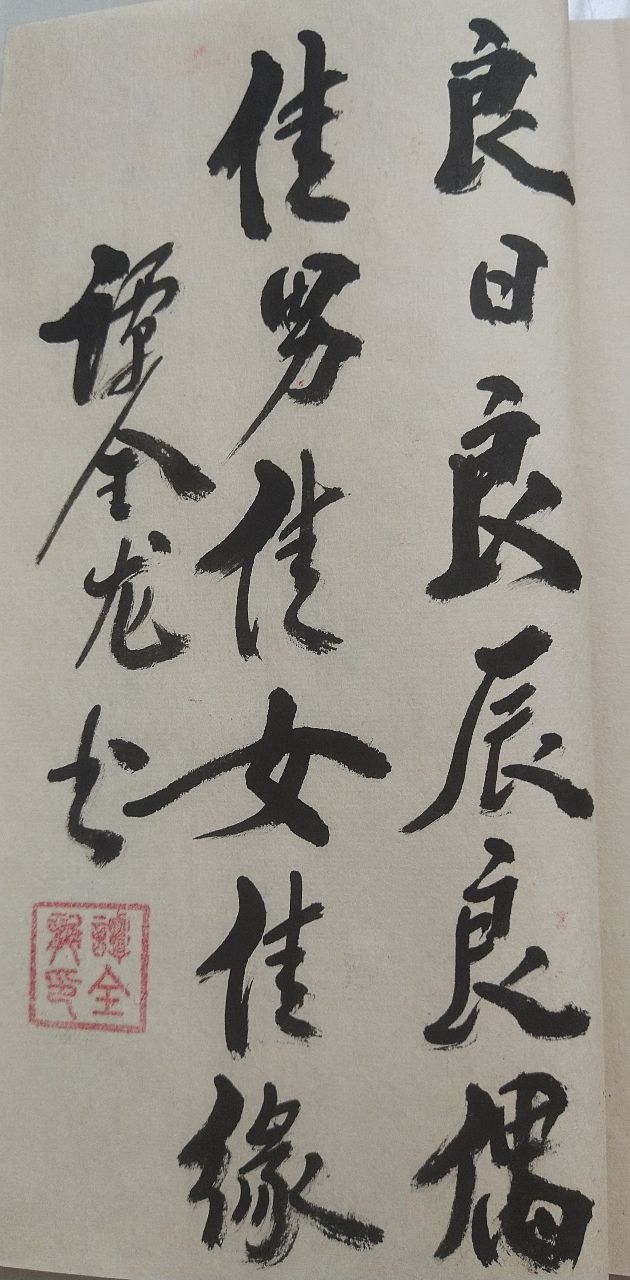 良日良辰良偶
佳男佳女佳缘
谭全龙书
譚全
印